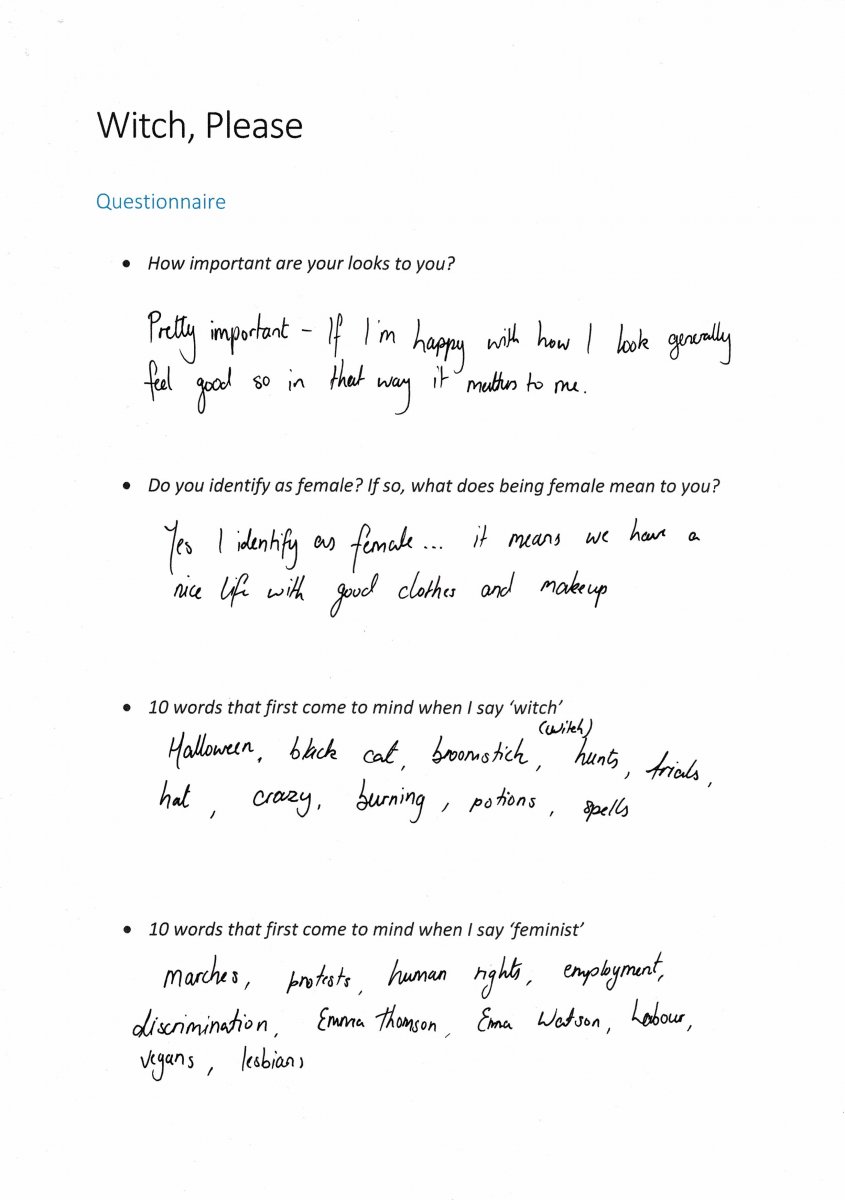 Witch, Please
Questionnaire
• How important are your looks to you?
Pretty important - If I'm happy with how I look generally
feel good so in that way it matters to me.
• Do you identify as female? If so, what does being female mean to you?
Yes I identify as female... it means we have a
nice life with good clothes and makeup
• 10 words that first come to mind when I say ‘witch’
(witch)
Halloween, black cat, broomstick, hunts, trials,
hat, crazy, burning, potions, spells
• 10 words that first come to mind when I say ‘feminist’
Marches, protests, human rights, employment,
discrimination, Emma Thomson, Emma Watson, Labour,
vegans, lesbians